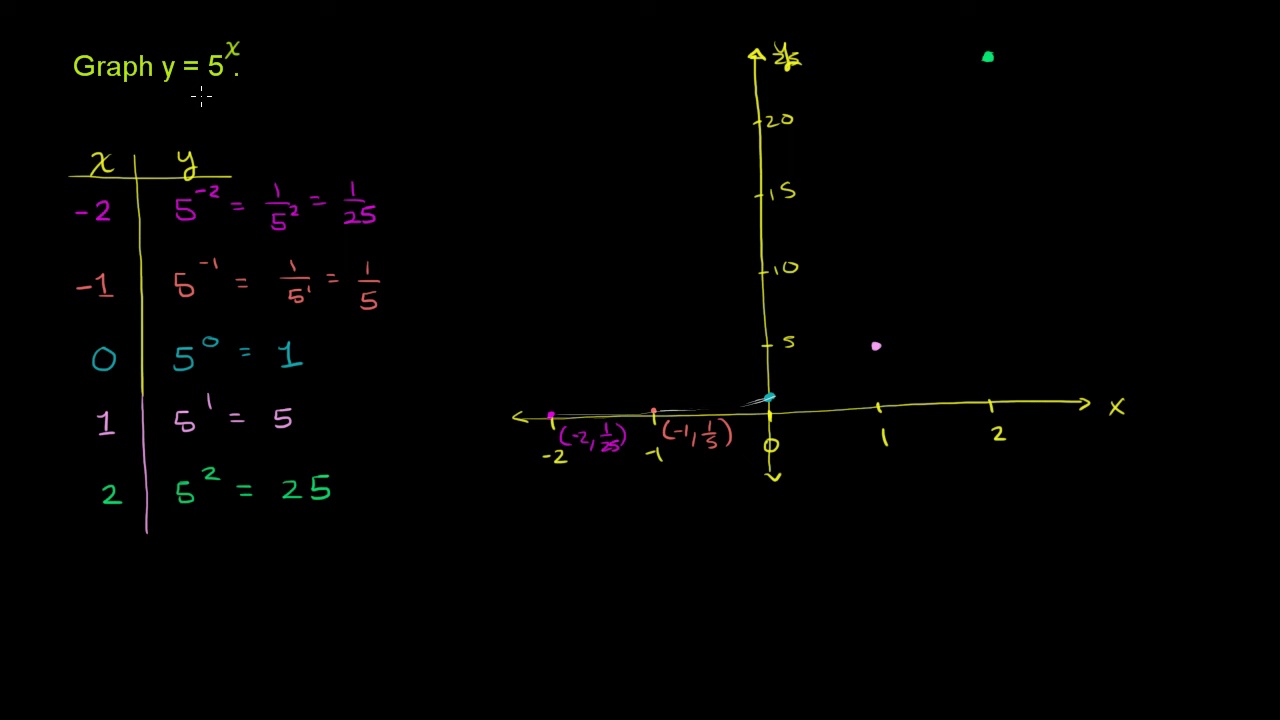 Graph y = 5^x.
x y
-2 5^-2 = 1/5^2 = 1/25
-1 5^-1 = 1/5^1 = 1/5
0 5^0 = 1
1 5^1 = 5
2 5^2 = 25
y
25
20
15
10
5
x
(-2, 1/25) (-1, 1/5)
-2 -1 0 1 2